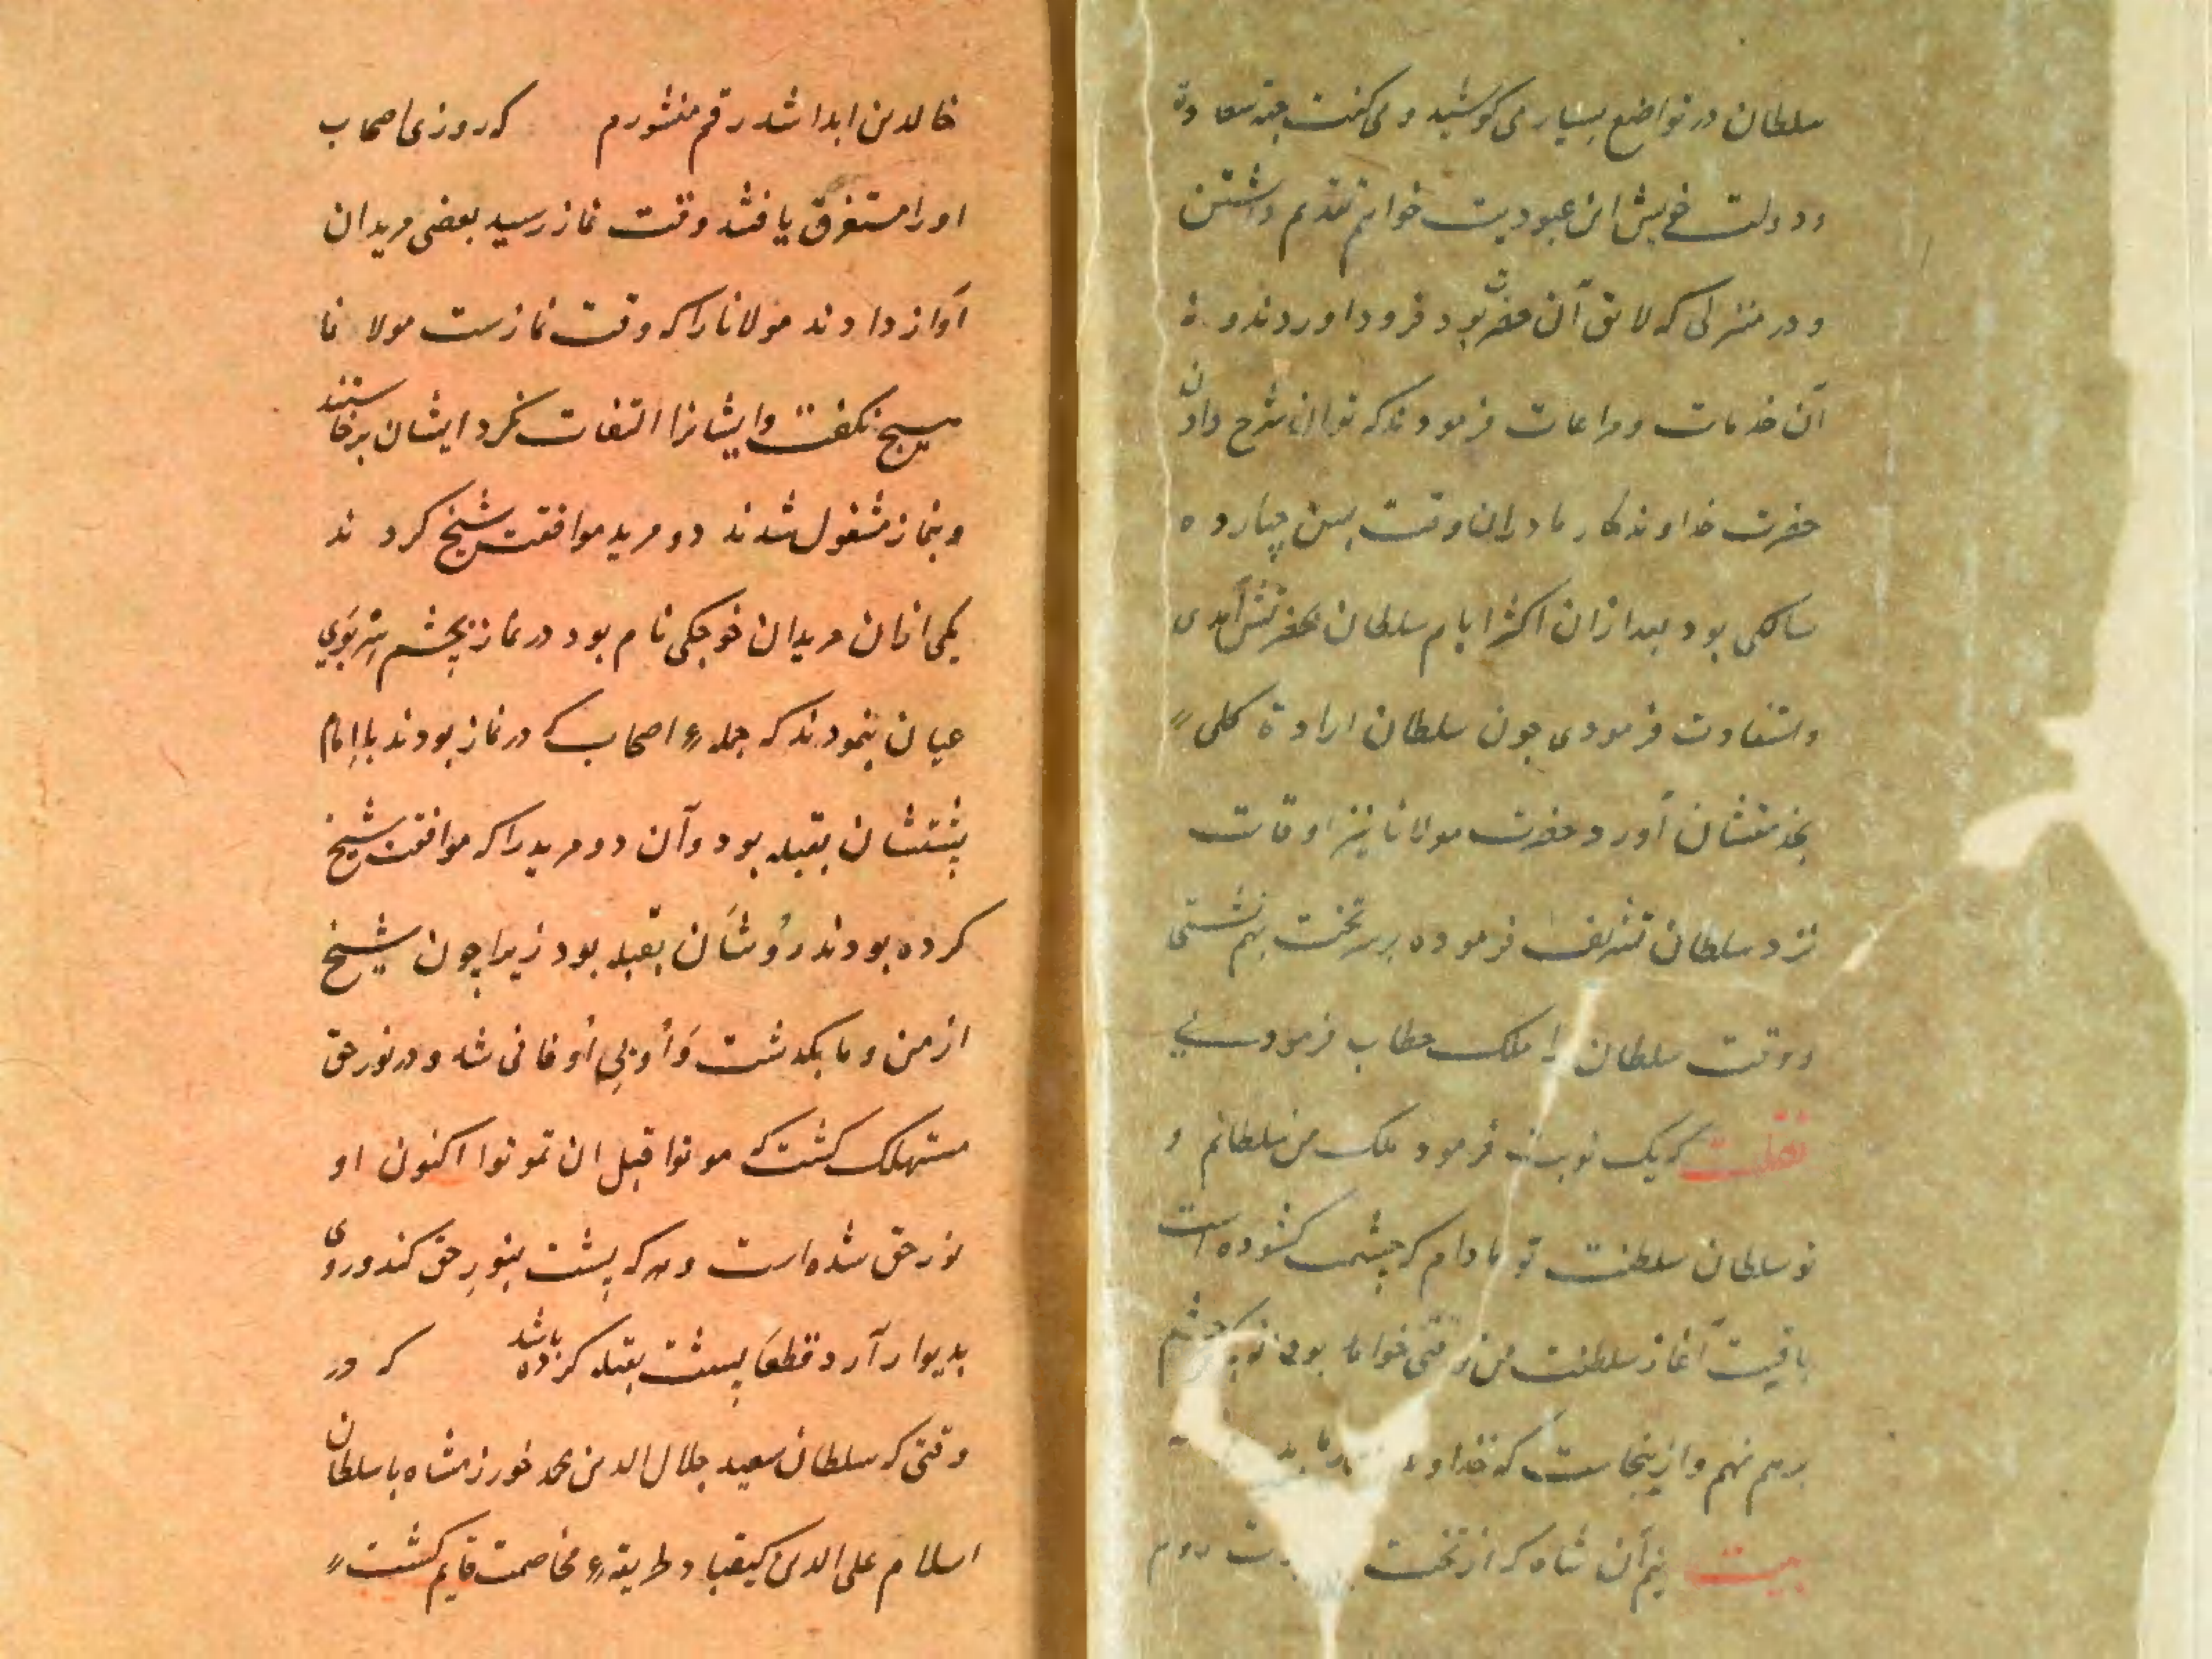 سلطان در تواضع بسیار می کوشید و می گفت
و دولت خویش این عبودیت خواهم تقدیم داشتن
و در منزلی که لایق آن حضرت بود فرود آوردند و نه
آن خدمات و مراعات فرمودند که توان شرح دادن
حضرت خداوندگار ما در ان وقت بسن چهارده
سالگی بود بعد از ان اکثر ایام سلطان بحضرتش آمدی
و استفادت فرمودی چون سلطان ارادة کلی
بخدمتشان آورد حضرت مولانا نیز اوقات
نزد سلطان تشریف فرموده بر سر تخت بهم نشستی
و وقت سلطان را ملک خطاب فرمودی
نقلست که یک نوبت فرمود ملک من سلطانم و
تو سلطان سلطنت تو مادام که چشمت گشوده است
باقیست آغاز سلطنت من وقتی خواهد بودن که چشم
برهم نهم و ازینجاست که خداوندگار
بیت نیم آن شاه که از تخت
خالدین ابدا شد رقم منشورم که روزی اصحاب
او را مستغرق یافتند وقت نماز رسید بعضی مریدان
آواز دادند مولانا را که وقت نمازست مولانا
هیچ نگفت و ایشانرا التفات نکرد ایشان برخاستند
و بنماز مشغول شدند دو مرید موافقت شیخ کردند
یکی از ان مریدان خوجکی نام بود در نماز بچشم سر بوی
عیان بنمودند که جملهء اصحاب که در نماز بودند با امام
پشتشان بقبله بود و آن دو مرید را که موافقت شیخ
کرده بودند روشان بقبله بود زیرا چون شیخ
از من و ما بگذشت و اویی او فانی شد و در نور حق
مستهلک گشت که موتوا قبل ان تموتوا اکنون او
نور حق شده است و هر که پشت بنور حق کند و روی
بدیوار آرد قطعا پشت بقبله کرده باشد که در
وقتی که سلطان سعید جلال الدین محمد خورزمشاه با سلطان
اسلام علی الدین کیقباد طریقهء مخاصمت قایم گشت